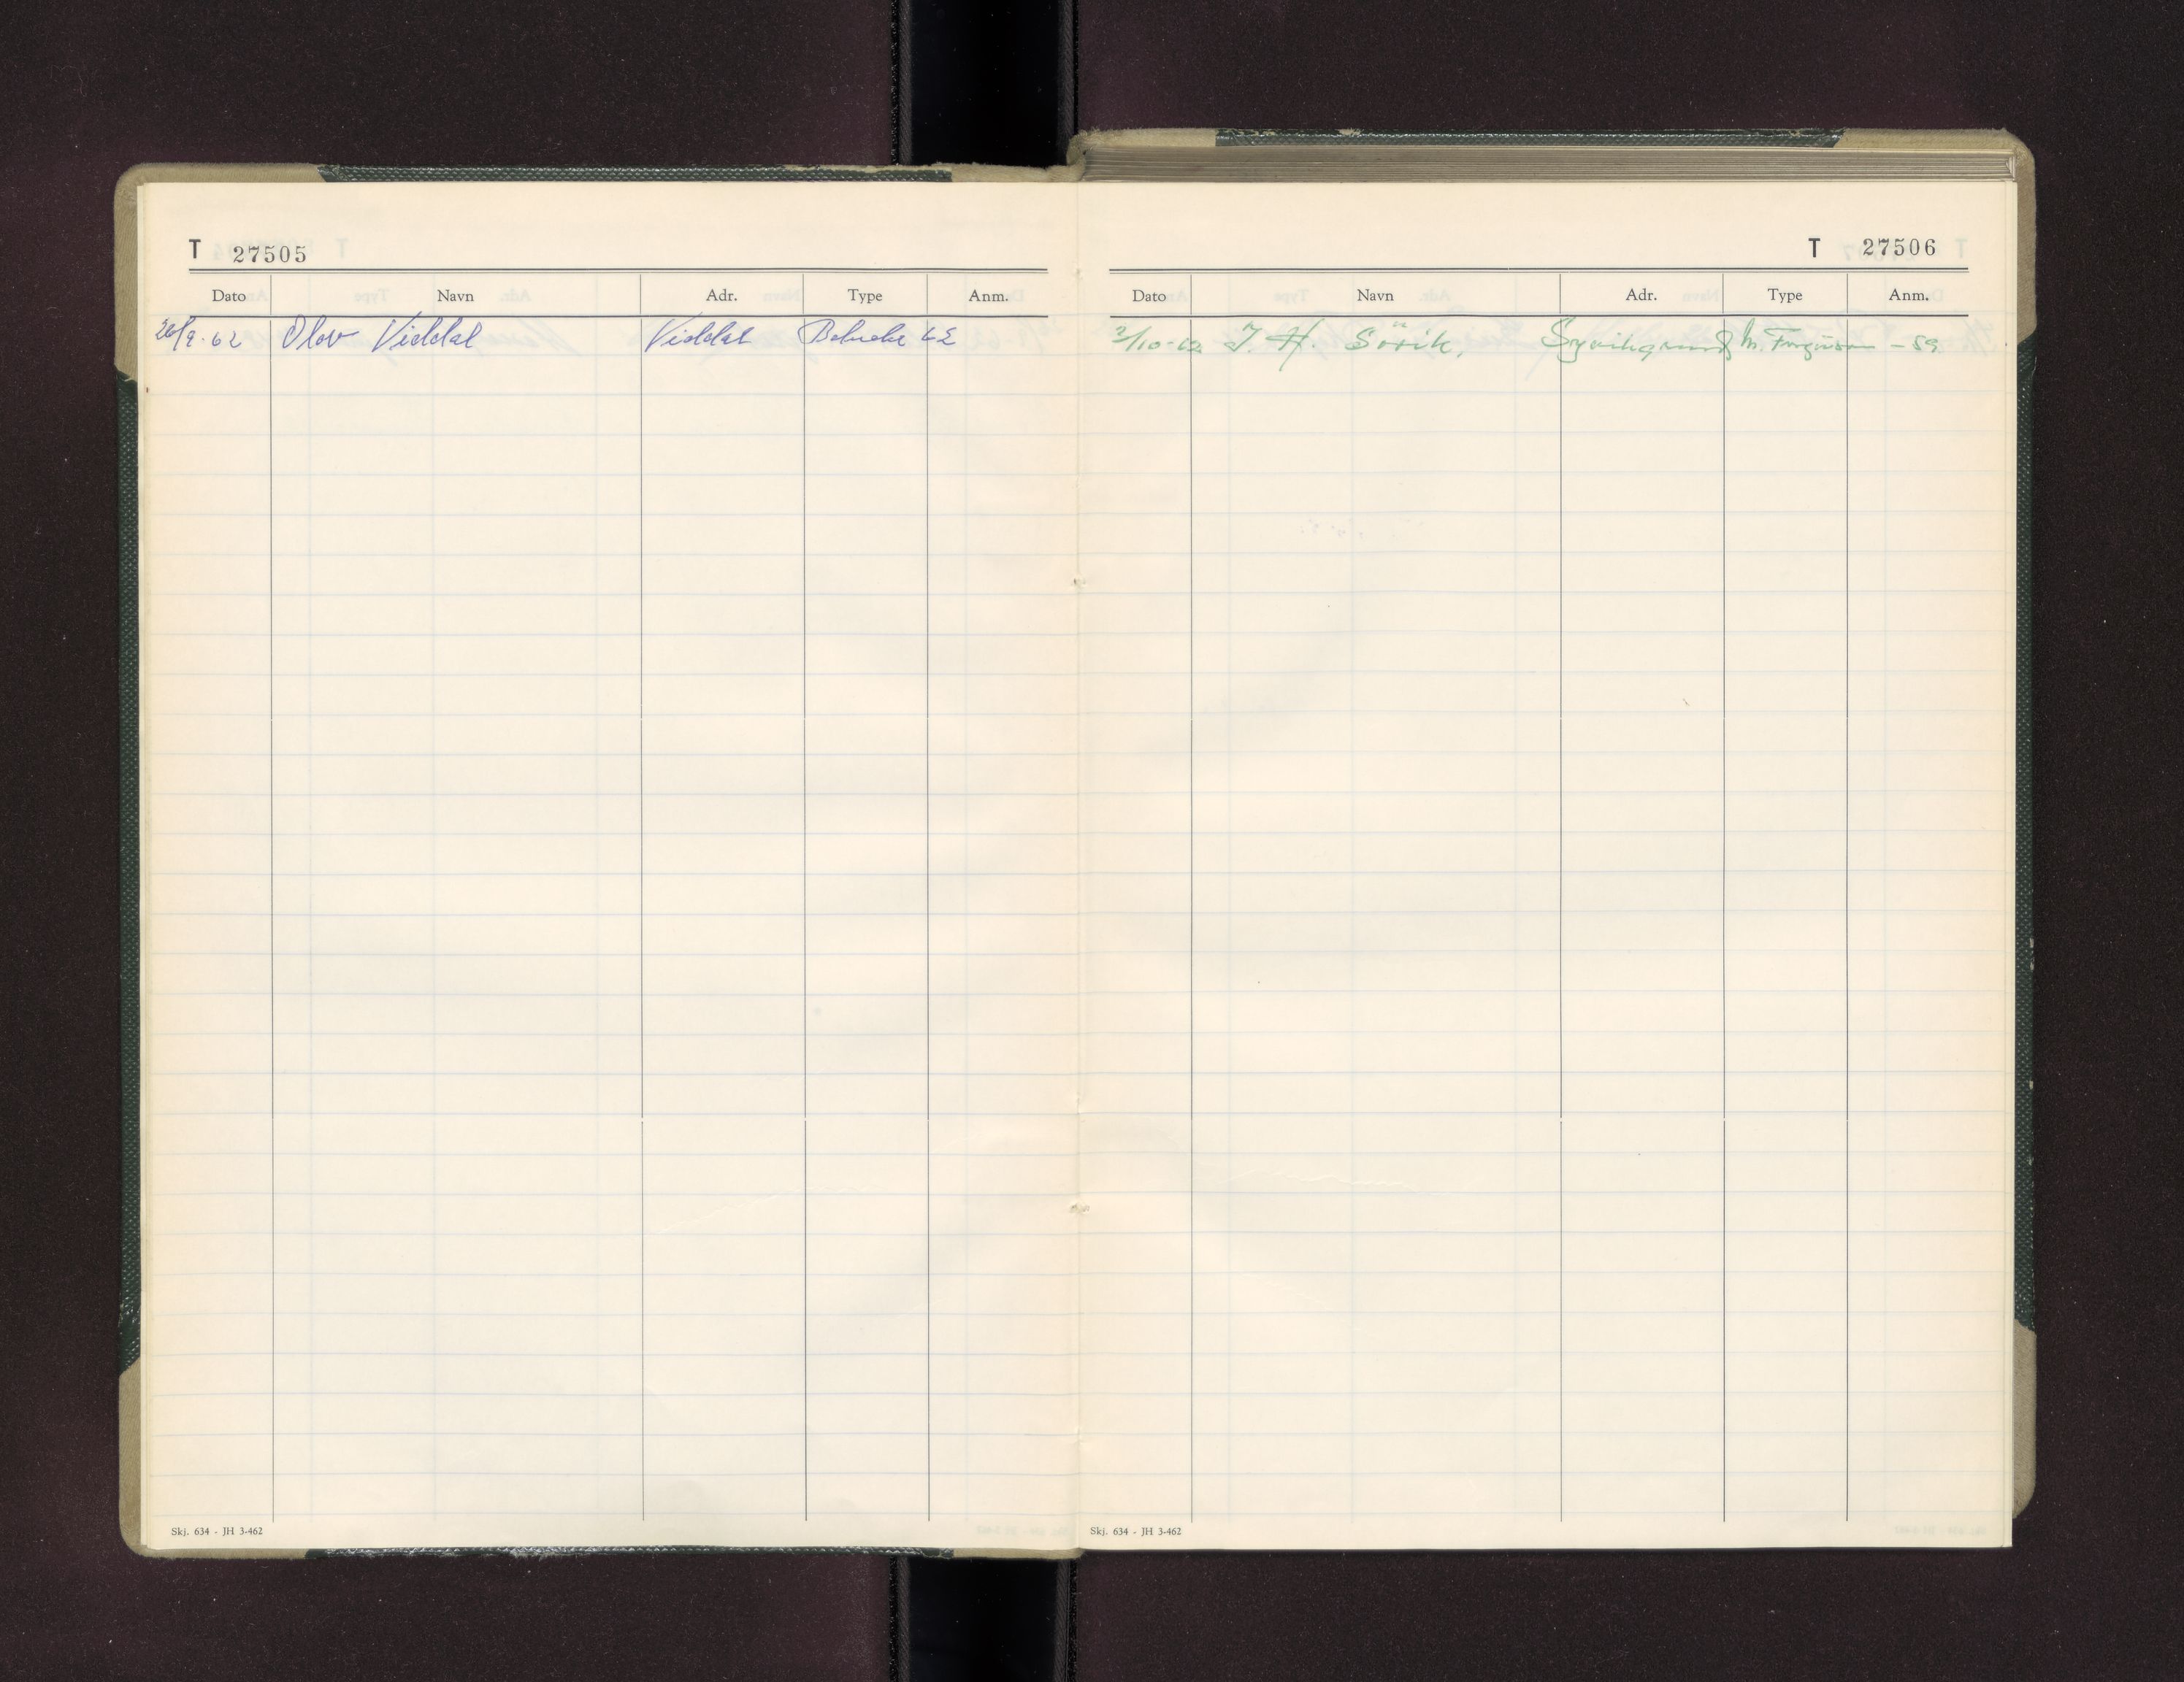 T 27505
Dato Navn Adr. Type Anm.
26/9-62 Olav Viddal Viddal Boluche 62
Skj. 634 - JH 3-462
T 27506
Dato Navn Adr. Type Anm.
2/10-62 J. H. Sövik, M. Ferguson - 59
Skj. 634 - JH 3-462